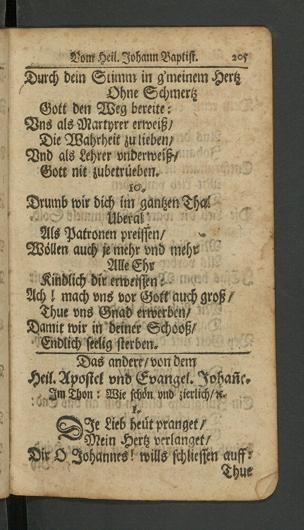 Vom Heil. Johann Baptist. 205
Durch dein Stimm in g'meinem Hertz
Ohne Schmertz
Gott den Weg bereite:
Vns als Martyrer erweiß/
Die Wahrheit zu lieben/
Vnd als Lehrer vnderweiß/
Gott nie zubetrüeben.
10.
Drumb wir dich im gantzen Thal
Uberal
Als Patronen preissen/
Wöllen auch je mehr vnd mehr
Alle Ehr
Kindlich dir erweissen:
Ach! mach vns vor Gott auch groß/
Thue vns Gnad erwerben/
Damit wir in deiner Schooß/
Endlich seelig sterben.
Das andere/ von dem
Heil. Apostel vnd Evangel. Johañe.
Im Thon: Wie schön vnd zierlich/ ꝛc.
1.
DIe Lieb heüt pranget/
Mein Hertz verlanget/
Dir O Johannes! wills schliessen auff:
Thue